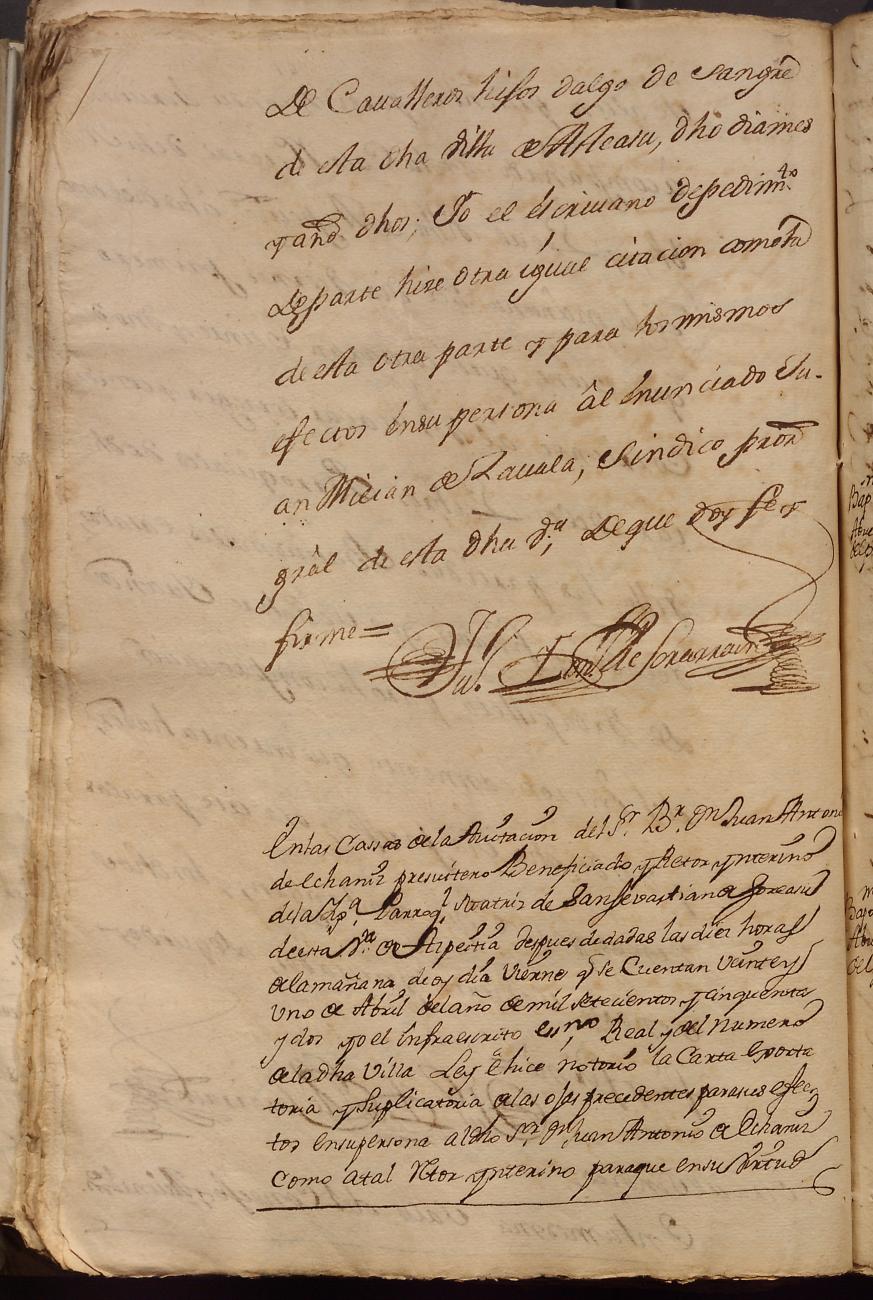 De Cavalleros hijos dalgo de sangre
de esta dha Villa de Asteasu, dho dia mes
y año dhos; Yo el escrivano de pedimto
de parte hize otra igual citacion como la
de esta otra parte y para los mismos
efectos en su persona âl enunciado Ju-
an Mician de Zavala, Sindico pror
grâl de esta dha va, de que doy fe y
firme=
En las Cassas de la Avitacion del Sr. Br. Dn Juan Antonio
de Echaniz presvitero Beneficiado y Retor ynterino
de la Yga Parroql Matriz de San Sevastian de Soreasu
de esta Va de Azpeitia despues de dadas las diez horas
de la mañana de oy dia Vierne qe se Cuentan veinte y
uno de Abril del año de mil setecientos y cinquenta
y dos yo el infraescrito essno Real y del Numero
de la dha Villa Ley e hice notorio la Carta Exorta
toria y Suplicatoria de las ojas precedentes para sus efec
tos en su persona al dho Sr. Dn Juan Antonio de Echaniz
Como a tal Retor ynterino para que en su Virtud